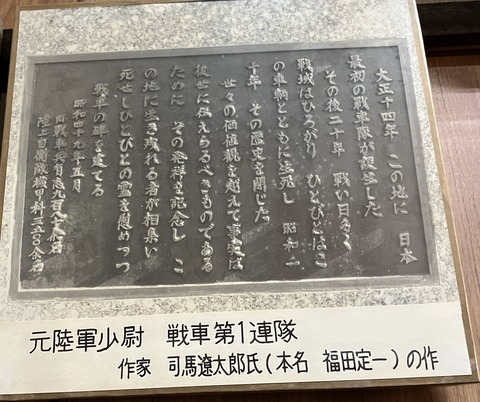 大正十四年 この地に 日本
最初の戦車隊が誕生した
その後二十年 戦い日多く
戦域はひろがり ひとびとはこ
の車輌とともに生死し 昭和二
十年 その歴史を閉じた
世々の価値観を越えて事実は
後世に伝えらるべきものである
ために その発祥を記念し こ
の地に生き残れる者が相集い
死せしひとびとの霊を慰めつつ
戦車の碑を建てる
昭和四十九年五月
旧戦車兵有志
陸上自衛隊機甲科三五〇余名
元陸軍少尉 戦車第1連隊
作家 司馬遼太郎氏(本名 福田定一)の作